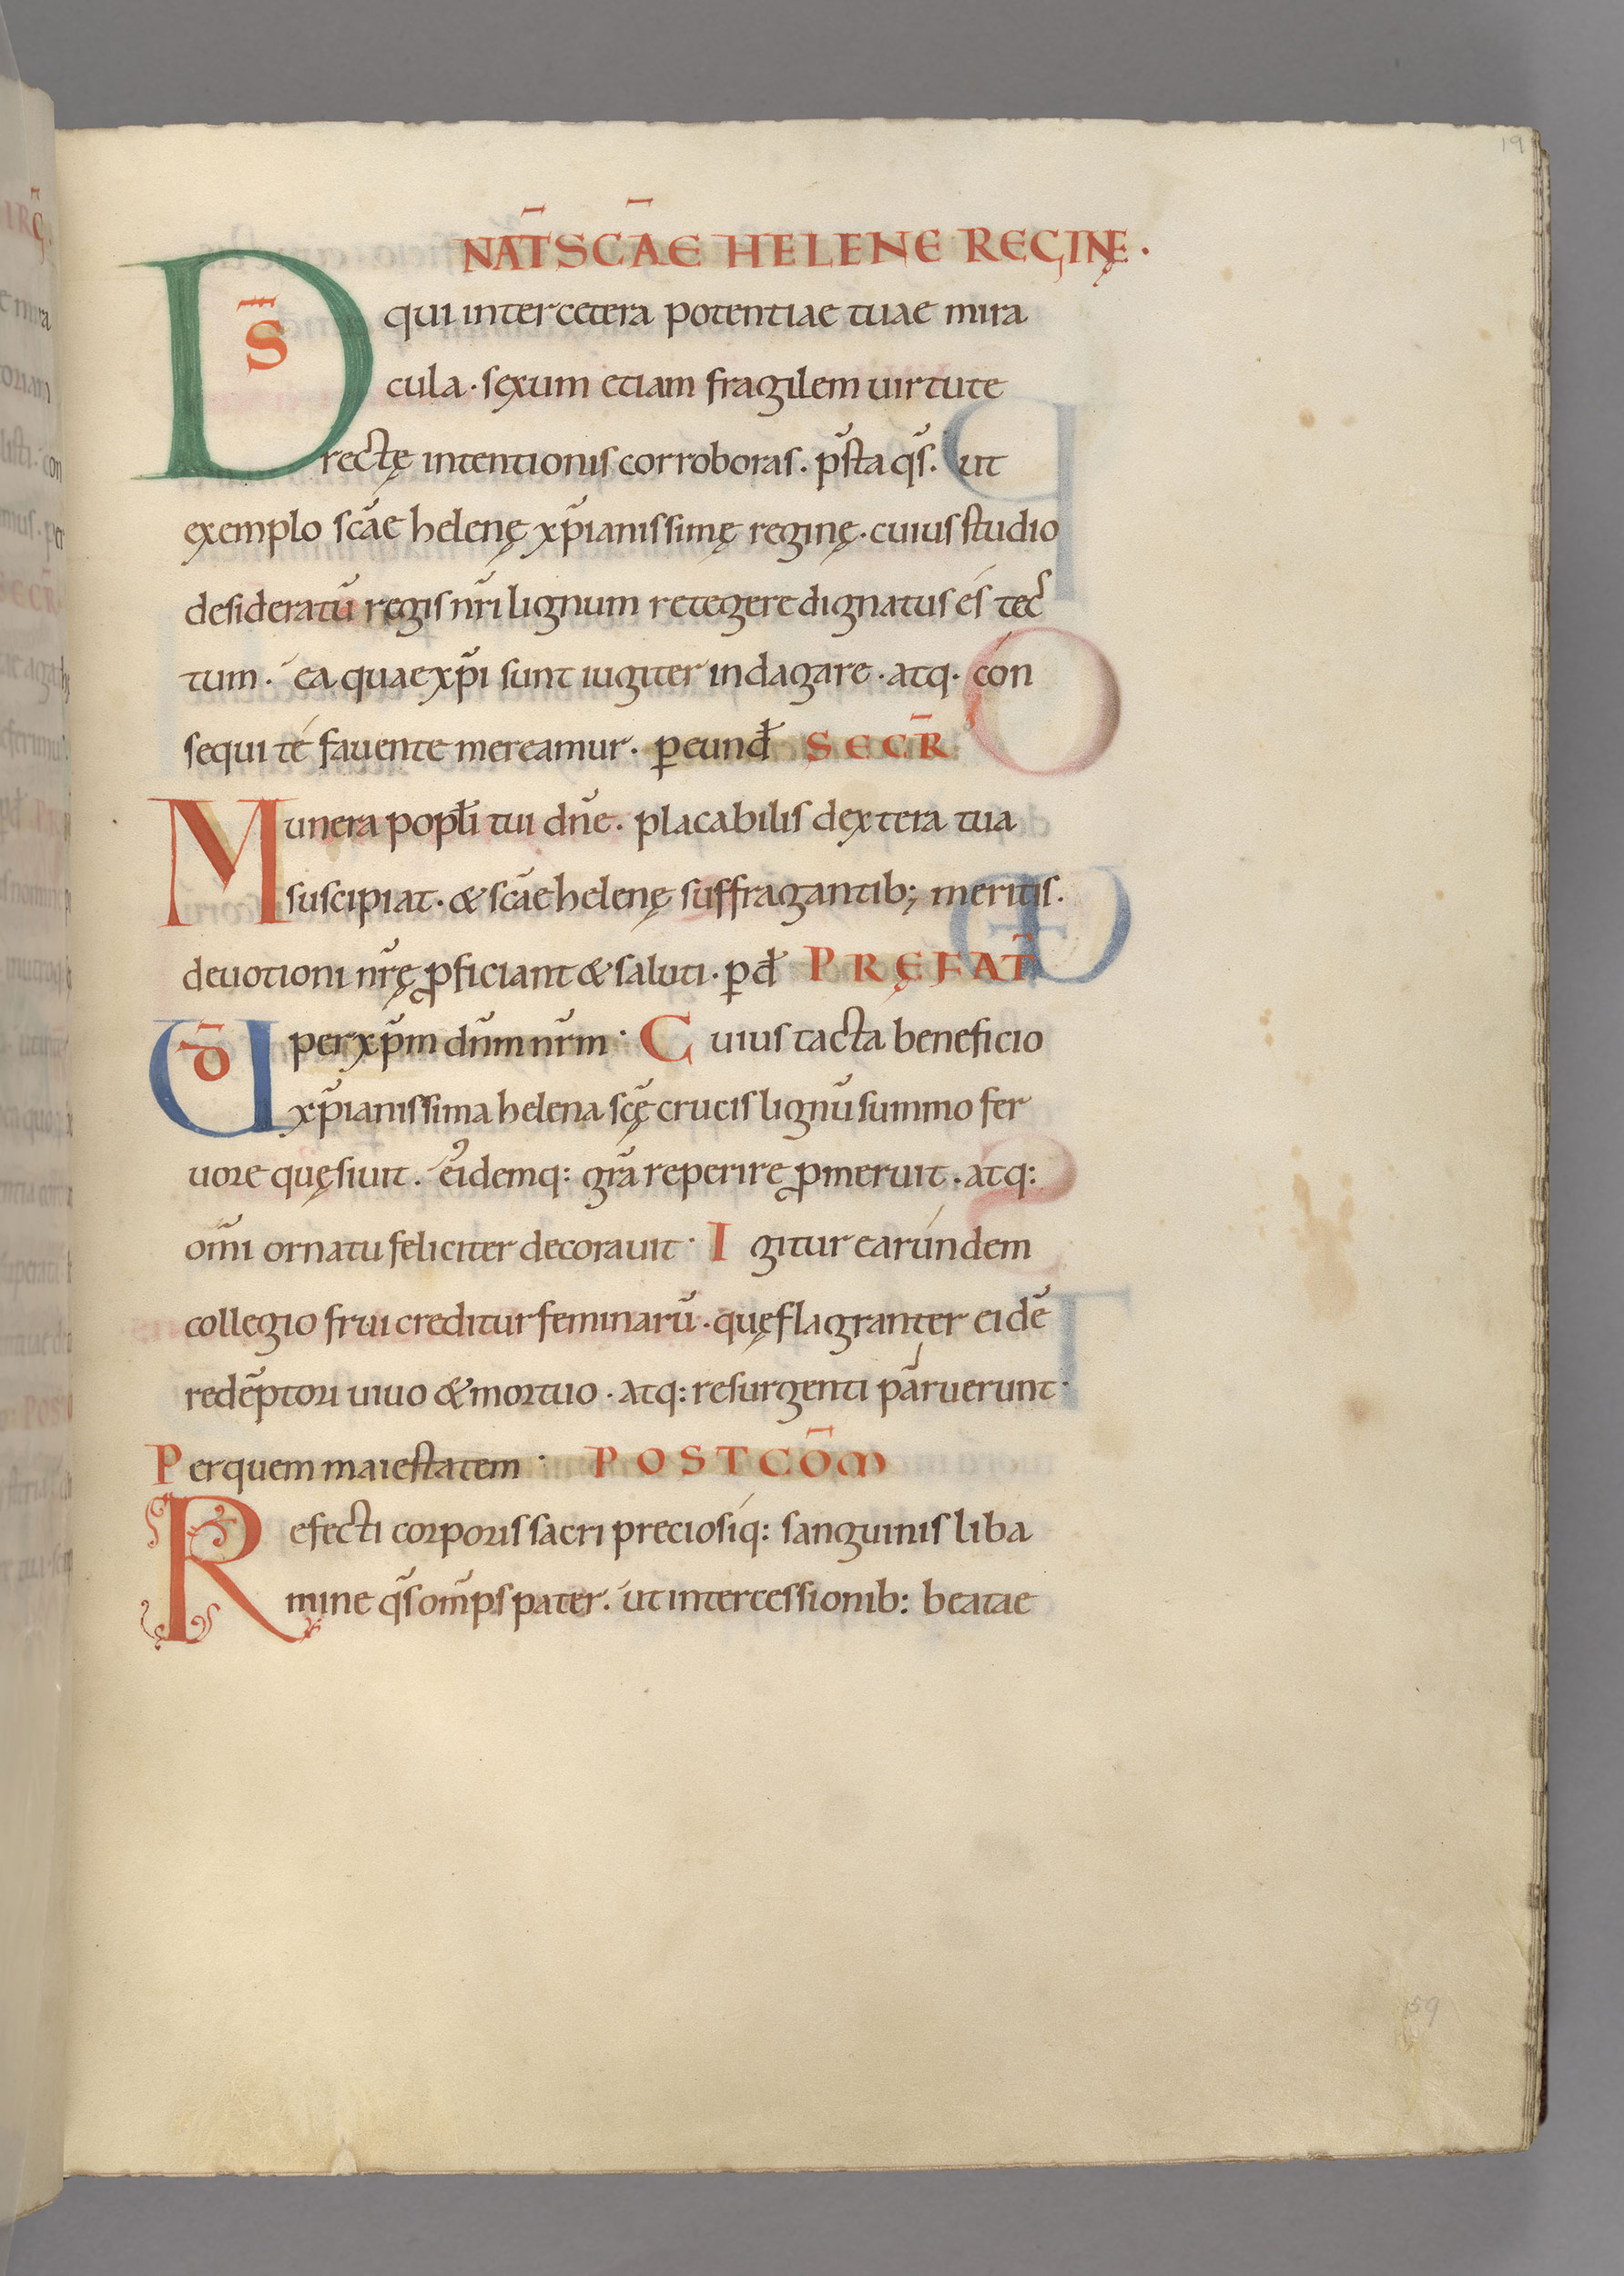 19
NAT̄ SCĀE HELENE REGINĘ.
DS̄ qui inter cetera potentiae tuae mira
cula · sexum etiam fragilem uirtute
rectę intentionis corroboras. p̄sta qs̄. ut
exemplo scāe helenę xp̄ianissimę reginę · cuius studio
desideratū regis nr̄i lignum retegere dignatus és tec
tum · ea quae xp̄i sunt iugiter indagare · atq. cón
sequi té fauente mereamur · ꝑ eund̄ SECR̄
Munera popl̄i tui dn̄e · placabilis dextera tua
suscipiat · & scāe helenę suffragantib; meritis.
deuotioni nr̄ę ꝓficiant & saluti · ꝑ d̄ PRĘFAT̄
UD̄ per xp̄m dn̄m nr̄m · Cuius tacta beneficio
xp̄ianissima helena scę̄ crucis lignū summo fer
uore quęsiuit · eidemq: gr̄a reperire ꝓmeruit · atq:
om̄i ornatu feliciter decorauit · Igitur earúndem
collegio frui creditur feminarū · quę flagranter eidē
redēptori uiuo & mortuo · atq: resurgenti paruerunt ·
Per quem maiestatem · POSTCŌM
Refecti corporis sacri preciosíq: sanguinis liba
mine qs̄ om̄ps pater · ut intercessionib: beatae
59